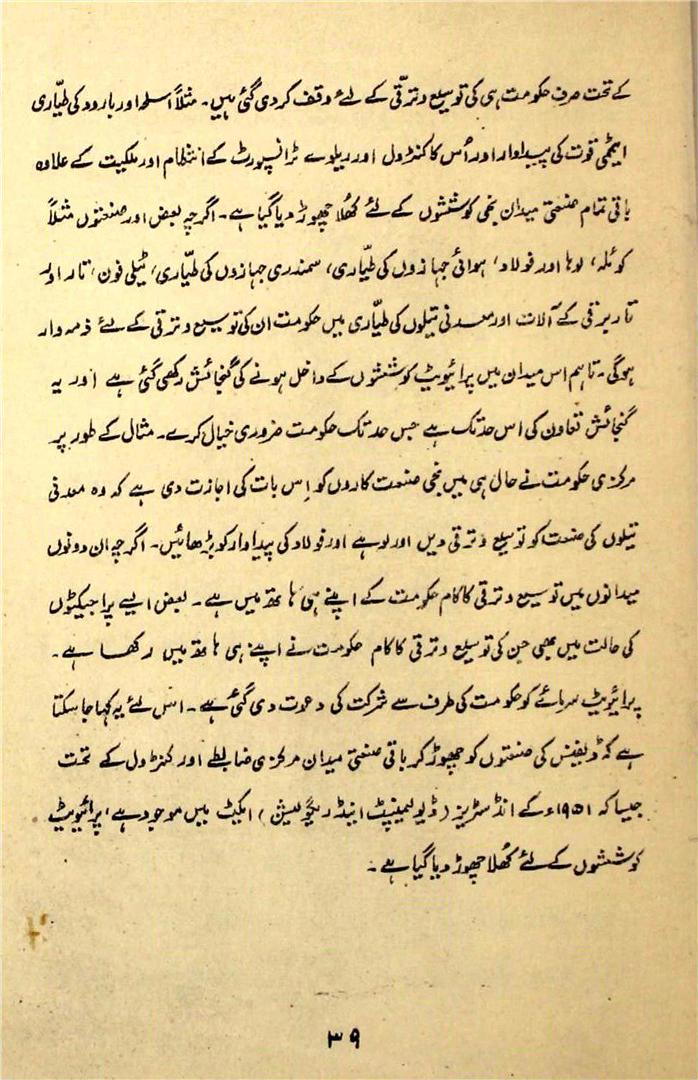 کے تحت صرف حکومت ہی کی توسیع و ترقی کے لئے وقف کر دی گئی ہیں۔ مثلاً اسلحہ اور بارود کی طیّاری
ایٹمی قوت کی پیداوار اور اُس کا کنٹرول اور ریلوے ٹرانسپورٹ کے انتظام اور ملکیت کے علاوہ
باقی تمام صنعتی میدان نجی کوششوں کے لئے کھُلا چھوڑ دیا گیا ہے۔ اگرچہ بعض اور صنعتوں مثلاً
کوئلہ، لوہا اور فولاد، ہوائی جہازوں کی طیّاری، سمندری جہازوں کی طیّاری، ٹیلی فون، تار اور
تار برقی کے آلات اور معدنی تیلوں کی طیّاری میں حکومت ان کی توسیع و ترقی کے لئے ذمہ وار
ہوگی۔ تاہم اس میدان میں پرائیویٹ کوششوں کے داخل ہونے کی گنجائش رکھی گئی ہے اور یہ
گنجائش تعاون کی اس حد تک ہے جس حد تک حکومت ضروری خیال کرے۔ مثال کے طور پر
مرکزی حکومت نے حال ہی میں نجی صنعت کاروں کو اِس بات کی اجازت دی ہے کہ وہ معدنی
تیلوں کی صنعت کو توسیع و ترقی دیں اور لوہے اور فولاد کی پیداوار کو بڑھائیں۔ اگرچہ ان دونوں
میدانوں میں توسیع و ترقی کا کام حکومت کے اپنے ہی ہاتھ میں ہے۔ بعض ایسے پراجیکٹوں
کی حالت میں بھی جن کی توسیع و ترقی کا کام حکومت نے اپنے ہی ہاتھ میں رکھا ہے۔
پرائیویٹ سرمائے کو حکومت کی طرف سے شرکت کی دعوت دی گئی ہے۔ اس لئے یہ کہا جا سکتا
ہے کہ ڈیفینس کی صنعتوں کو چھوڑ کر باقی صنعتی میدان مرکزی ضابطے اور کنٹرول کے تحت
جیسا کہ ۱۹۵۱ء کے انڈسٹریز (ڈیولپمینٹ اینڈ ریگولیشن) ایکٹ میں موجود ہے، پرائیویٹ
کوششوں کے لئے کھُلا چھوڑ دیا گیا ہے۔
۳۹